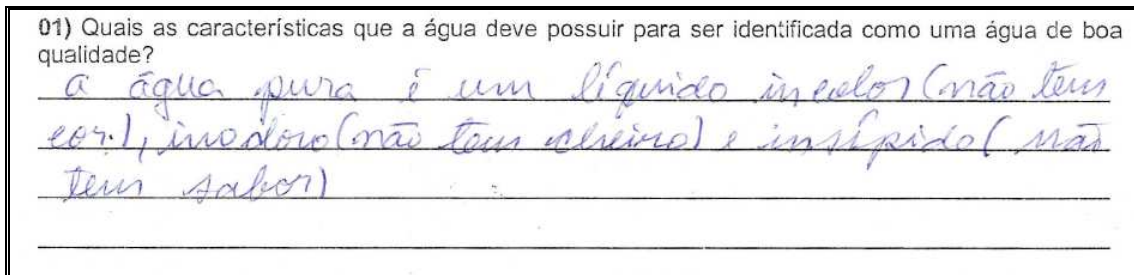 01) Quais as características que a água deve possuir para ser identificada como uma água de boa
qualidade?
a água pura é um líquido incolor (não tem
cor.), inodoro (não tem cheiro) e insípido ( não
tem sabor)